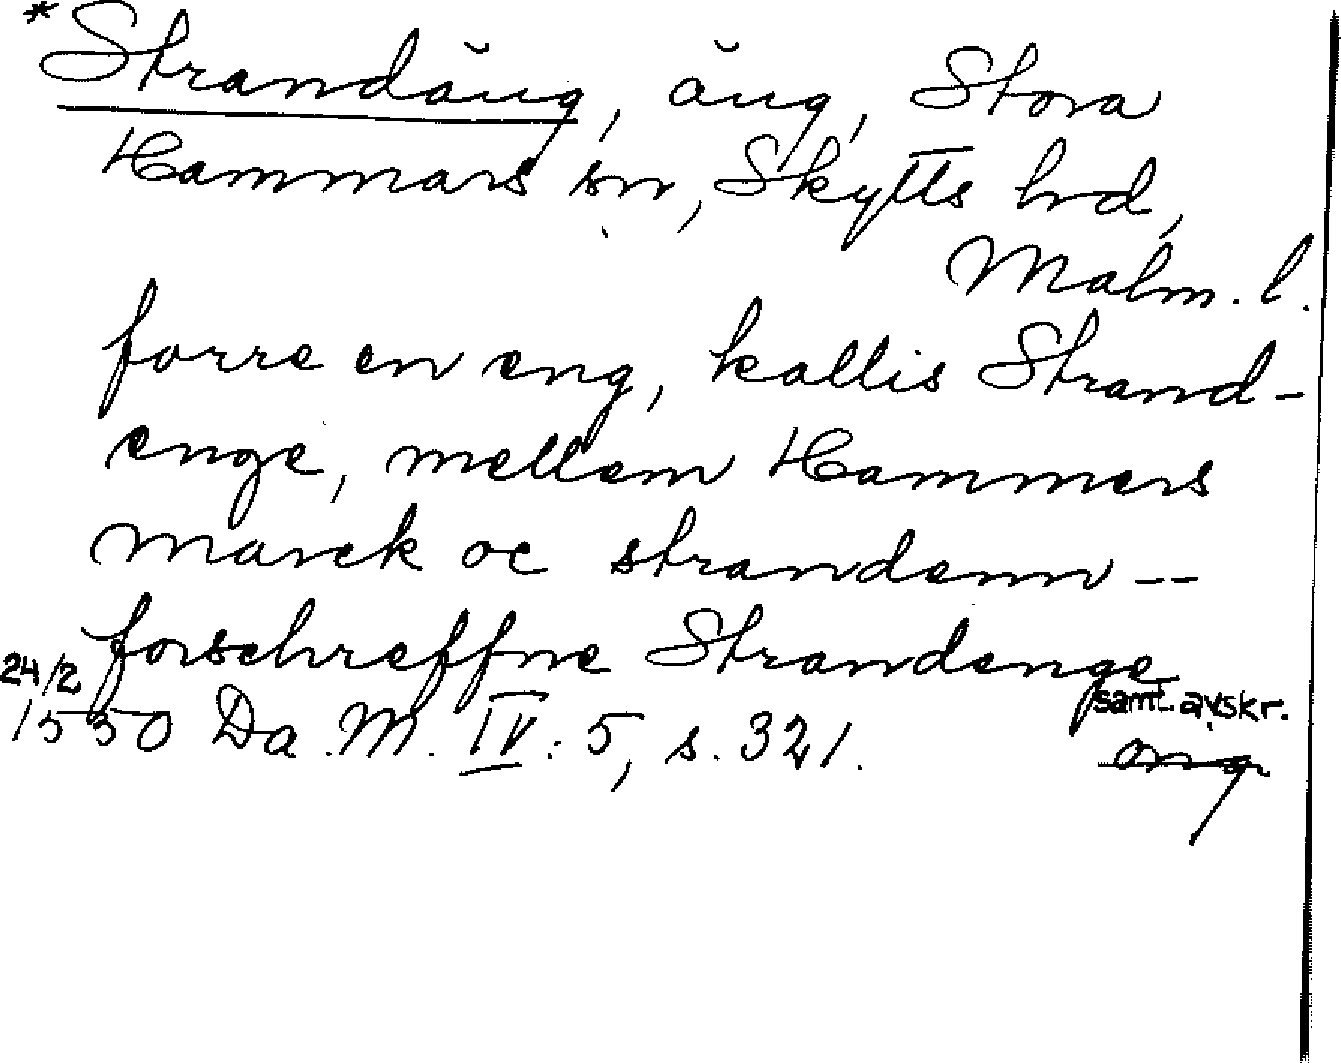 *Strandäng, äng, Stora
Hammars sn, Skytts hd,
Malm. l.
forre en eng, kallis Strand-
enge, mellem Hammers
marck oc strandenn --
forschreffne Strandenge
24/2 samt. avskr.
1550 Da. M. IV: 5, s. 321. orig